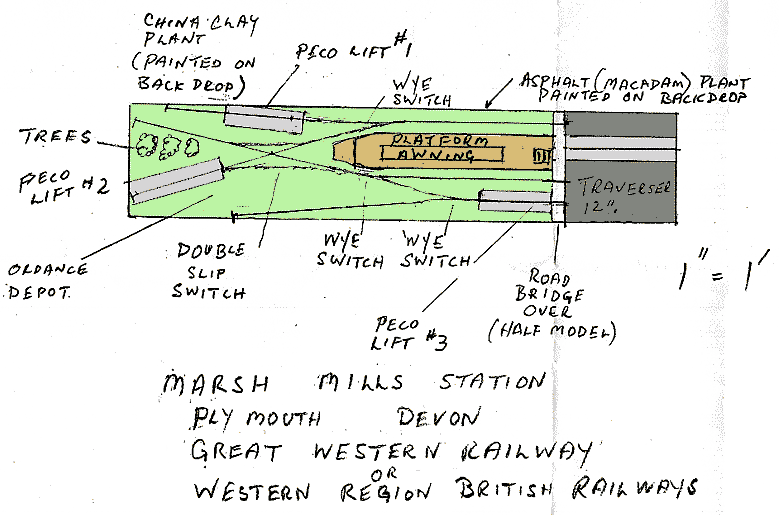 CHINA CLAY
PLANT
(PAINTED ON
BACK DROP)
PECO LIFT #1
WYE
SWITCH
ASPHALT (MACADAM) PLANT
PAINTED ON BACKDROP
TREES
PLATFORM
AWNING
PECO
LIFT #2
TRAVERSER
12".
ORDANCE
DEPOT.
DOUBLE
SLIP
SWITCH
WYE
SWITCH
WYE
SWITCH
PECO
LIFT #3
ROAD
BRIDGE
OVER
(HALF MODEL)
1" = 1'
MARSH MILLS STATION
PLYMOUTH DEVON
GREAT WESTERN RAILWAY
OR
WESTERN REGION BRITISH RAILWAYS